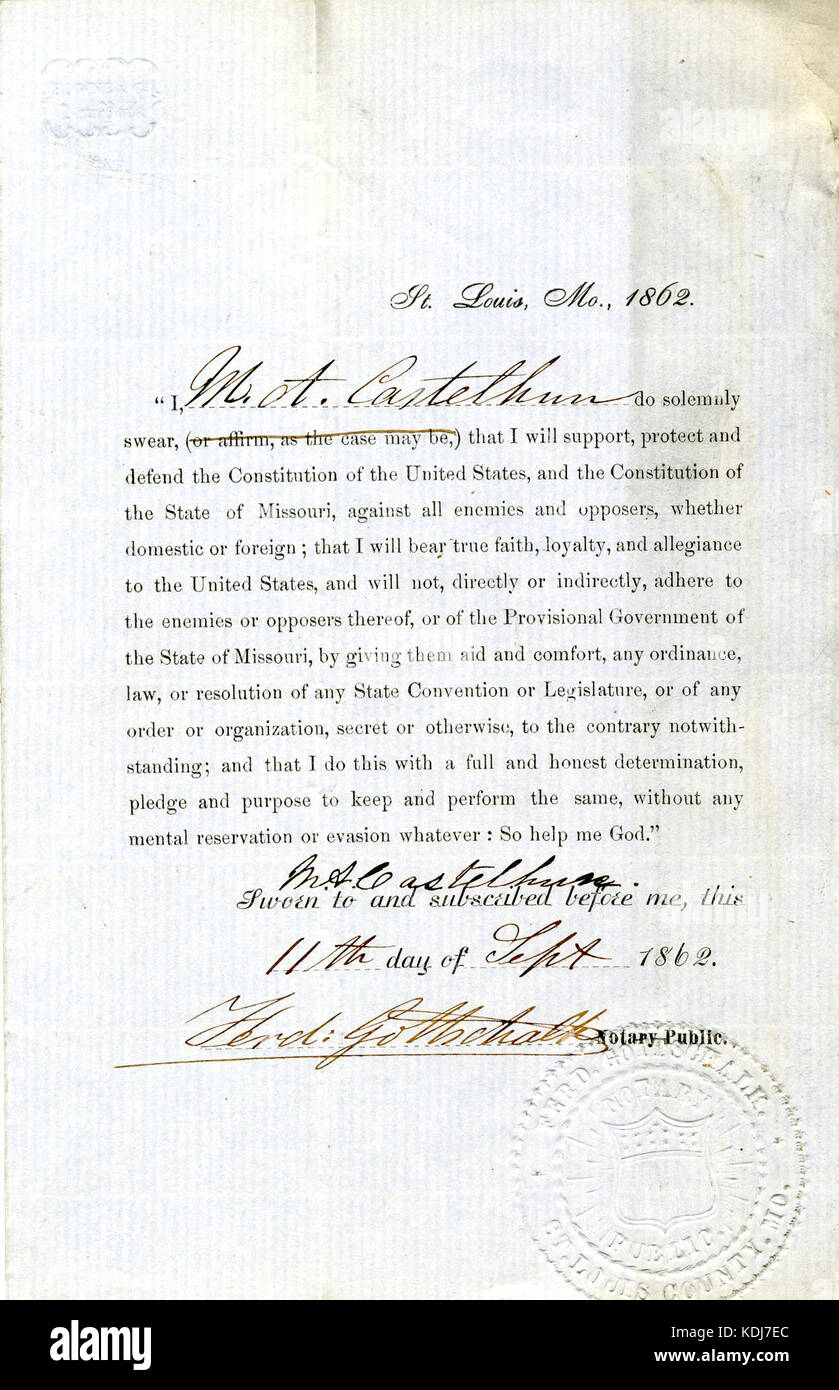 St. Louis, Mo., 1862.
"I, M. A. Castelhun do solemnly
swear, (or affirm, as the case may be,) that I will support, protect and
defend the Constitution of the United States, and the Constitution of
the State of Missouri, against all enemies and opposers, whether
domestic or foreign; that I will bear true faith, loyalty, and allegiance
to the United States, and will not, directly or indirectly, adhere to
the enemies or opposers thereof, or of the Provisional Government of
the State of Missouri, by giving them aid and comfort, any ordinance,
law, or resolution of any State Convention or Legislature, or of any
order or organization, secret or otherwise, to the contrary notwith-
standing; and that I do this with a full and honest determination,
pledge and purpose to keep and perform the same, without any
mental reservation or evasion whatever: So help me God."
M. A. Castelhun.
Sworn to and subscribed before me, this
11th day of Sept 1862.
Ferd: Gottschalk Notary Public.
FERD. GOTTSCHALK.
NOTARY
PUBLIC.
ST. LOUIS COUNTY. MO.
alamy
Image ID: KDJ7EC
www.alamy.com